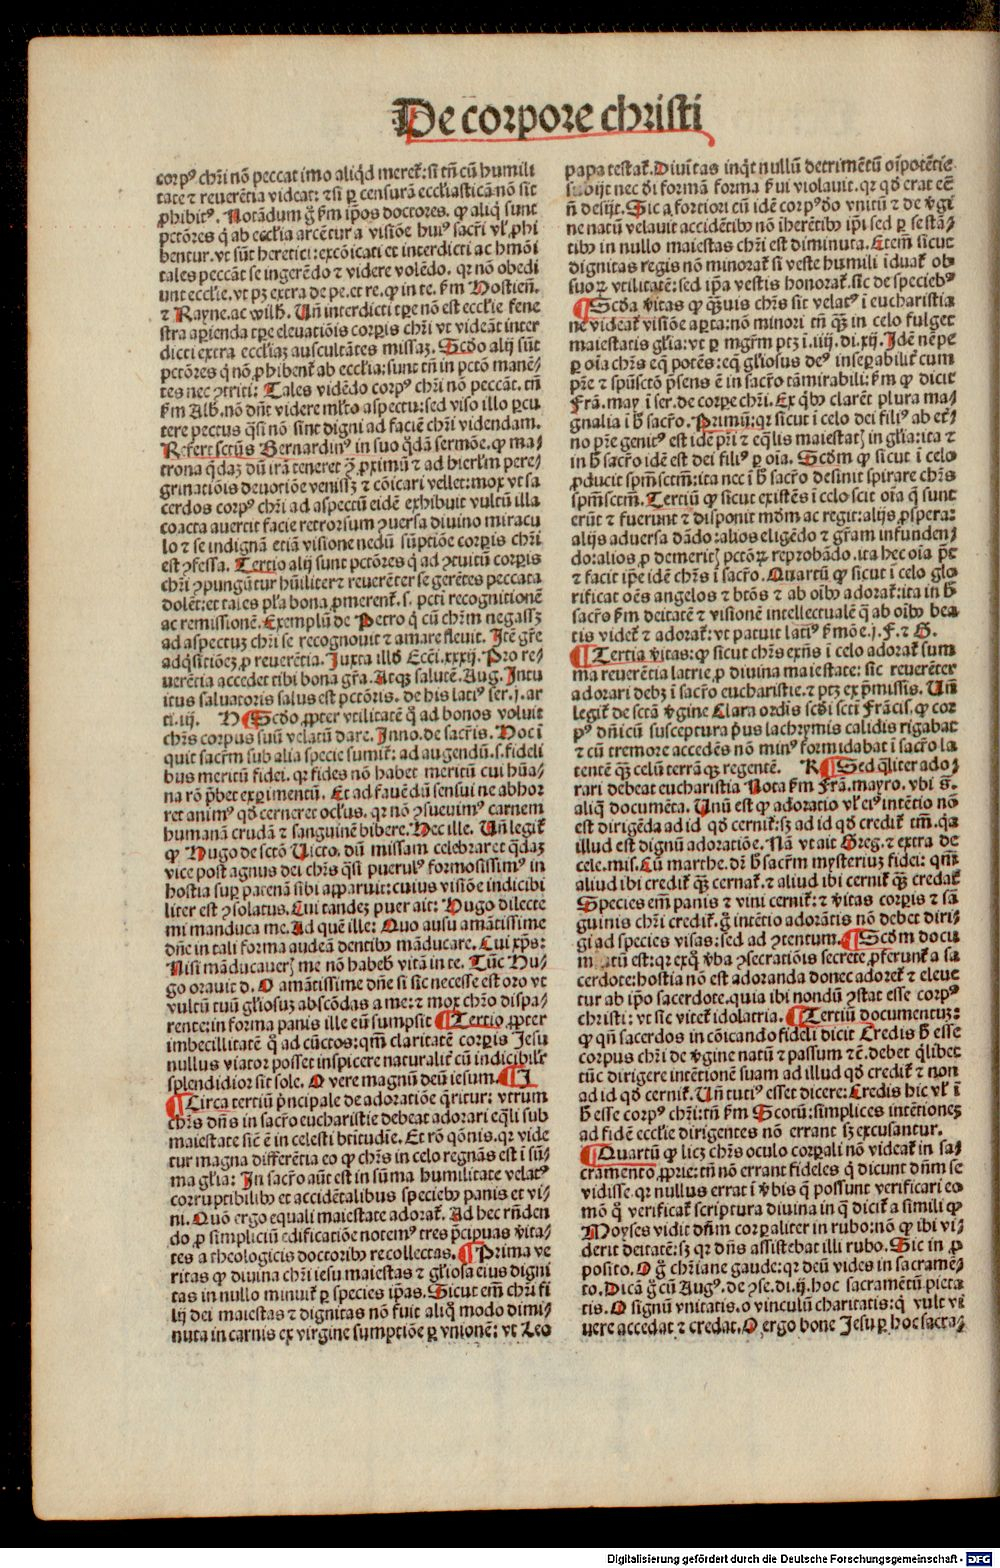 De corpore christi
corpꝰ chr̃i nõ peccat imo aliq̃d meret᷑: si tñ cũ humili
tate ⁊ reuerẽtia videat: ⁊ si ꝑ censurã eccl̃iasticã nõ sit
ꝓhibitꝰ. Notãdum g̃ ẜm ip̃os doctores. ꝙ aliq̃ sunt
pctõres q̃ ab eccl̃ia arcẽtur a visiõe huiꝰ sacr̃i vl̃ ꝓhi
bentur. vt sũt heretici: excõicati et interdicti ac hmõi
tales peccãt se ingerẽdo ⁊ videre volẽdo. qr nõ obedi
unt eccl̃ie. vt pꝫ extra de pe. et re. ꝙ in te. ẜm Hostieñ.
⁊ Rayne. ac wilh̃. Uñ interdicti tꝑe nõ est eccl̃ie fene
stra aperienda tꝑe eleuatiõis corꝑis chr̃i vt videãt inter
dicti extra eccl̃iaꝫ auscultãtes missaꝫ. Scd̃o alij sũt
pctõres q̃ nõ ꝓhibent᷑ ab eccl̃ia: sunt tñ in pctõ manẽ⸗
tes nec ꝯtriti: Tales vidẽdo corpꝰ chr̃i nõ peccãt. tñ
ẜm Alb̃. nõ dñt videre ml̃to aspectu: sed viso illo ꝑcu
tere pectus q̃si nõ sint digni ad faciẽ chr̃i videndam.
Refert sctũs Bernardinꝰ in suo q̃dã sermõe. ꝙ ma⸗
trona q̃daꝫ dũ irã teneret ꝯ̃ ꝓximũ ⁊ ad hierl̃m pere⸗
grinatiõis deuotiõe venissꝫ ⁊ cõicari vellet: mox vt sa
cerdos corpꝰ chr̃i ad aspectũ eidẽ exhibuit vultũ illa
coacta auertit facie retrorsum ꝯuersa diuino miracu
lo ⁊ se indignã etiã visione nedũ sũptiõe corꝑis chr̃i
est ꝯfessa. Tertio alij sunt pctõres q̃ ad ꝯtuitũ corꝑis
chr̃i ꝯpungũtur hũiliter ⁊ reuerẽter se gerẽtes peccata
dolẽt: et tales pl̃a bona ꝓmerent᷑. s. pcti recognitionẽ
ac remissionẽ. Exemplũ de Petro q̃ cũ chr̃m negassꝫ
ad aspectuꝫ chr̃i se recognouit ⁊ amare fleuit. Itẽ gr̃e
adq̃sitiõeꝫ ꝓ reuerẽtia. Juxta illð Ecci. xxxij. Pro re⸗
uerẽtia accedet tibi bona gr̃a. Atqꝫ salutẽ. Aug. Intu
itus saluatoris salus est pctõris. de his latiꝰ ser. j. ar
ti. iij. H ¶ Scd̃o ꝓpter vtilitatẽ q̃ ad bonos voluit
chr̃s corpus suũ velatũ dare. Inno. de sacr̃is. Hoc i
quit sacr̃m sub alia specie sumit᷑: ad augendũ. s. fideli
bus meritũ fidei. qr fides nõ habet meritũ cui hũa⸗
na rõ p̃bet exꝑimentũ. Et ad fauẽdũ sensui ne abhor
ret animꝰ qð cerneret ocl̃us. qr nõ ꝯsueuimꝰ carnem
humanã crudã ⁊ sanguinẽ bibere. Hec ille. Uñ legit᷑
ꝙ Hugo de sctõ Uicto. dũ missam celebraret q̃daꝫ
vice post agnus dei chr̃s q̃si puerulꝰ formosissimꝰ in
hostia suꝑ patenã sibi apparuit: cuius visiõe indicibi
liter est ꝯsolatus. Cui tandeꝫ puer ait: Hugo dilecte
mi manduca me. Ad quẽ ille: Quo ausu amãtissime
dñe in tali forma audeã dentibꝰ mãducare. Cui xp̃s:
Nisi mãducauerꝭ me nõ habeb̃ vitã in te. Tũc Hu⸗
go orauit d. O amãtissime dñe si sic necesse est oro vt
vultũ tuũ gl̃iosuꝫ abscõdas a me: ⁊ mox chr̃o dispa⸗
rente: in forma panis ille eũ sumpsit ¶ Tertio ꝓpter
imbecillitatẽ q̃ ad cũctos: qm̃ claritatẽ corꝑis Jesu
nullus viator posset inspicere naturalit᷑ cũ indicibilr̃
splendidior sit sole. O vere magnũ deũ iesum. ¶ J
¶ Circa tertiũ p̃ncipale de adoratiõe q̃ritur: vtrum
chr̃s dñs in sacr̃o eucharistie debeat adorari eq̃li sub
maiestate sic̃ ẽ in celesti btitudie. Et rõ q̃õnis. qr vide
tur magna differẽtia eo ꝙ chr̃s in celo regnãs est i sũ⸗
ma gl̃ia: In sacr̃o aũt est in sũma humilitate velatꝰ
corruptibilibꝰ et accidẽtalibus speciebꝰ panis et vi⸗
ni. Quõ ergo equali maiestate adorat᷑. Ad hec rñden
do ꝓ simpliciũ edificatiõe notemꝰ tres p̃cipuas v̾ita⸗
tes a theologicis doctoribꝰ recollectas. ¶ Prima ve
ritas ꝙ diuina chr̃i iesu maiestas ⁊ gl̃iosa eius digni
tas in nullo minuit᷑ ꝑ species ip̃as. Sicut em̃ chr̃i fi
lij dei maiestas ⁊ dignitas nõ fuit aliq̃ modo dimi⸗
nuta in carnis ex virgine sumptiõe ꝑ vnionẽ: vt Leo
papa testat᷑. Diuĩtas inq̃t nullũ detrimẽtũ oĩpotẽtie
subijt nec d̾i formã forma s̾ui violauit. qr qð erat cẽ
ñ desijt. Sic a fortiori cũ idẽ corpꝰ d̾o vnitũ ⁊ de v̾gi
ne natũ velauit accidẽtibꝰ nõ iherẽtibꝰ ip̃i sed ꝑ se stã⸗
tibꝰ in nullo maiestas chr̃i est diminuta. Etem̃ sicut
dignitas regis nõ minorat᷑ si veste humili iduat᷑ ob
suoꝝ vtilitatẽ: sed ip̃a vestis honorat᷑. sic de speciebꝰ
¶ Scd̃a v̾itas ꝙ q̃ꝫuis chr̃s sit velatꝰ i eucharistia
ne videat᷑ visiõe aꝑta: nõ minori tñ q̃ꝫ in celo fulget
maiestatis gl̃ia: vt ꝑ mgr̃m ptꝫ i. iiij. di. xij. Idẽ nẽpe
ꝑ oĩa chr̃s eq̃ potẽs: eq̃ gl̃iosus deꝰ inseꝑabilit᷑ cum
pr̃e ⁊ sp̃usctõ p̃sens ẽ in sacr̃o tã mirabili: ẜm ꝙ dicit
Frã. may i ser. de corꝑe chr̃i. Ex q̃bꝰ clarẽt plura ma⸗
gnalia i h̾ sacr̃o. Primũ: qr sicut i celo dei filiꝰ ab et᷑⸗
no pr̃e genitꝰ est idẽ pr̃i ⁊ eq̃lis maiestatꝭ in gl̃ia: ita ⁊
in h̾ sacr̃o idẽ est dei filiꝰ ꝑ oĩa. Scd̃m ꝙ sicut i celo
ꝓducit sp̃m sctm̃: ita nec i h̾ sacr̃o desinit spirare chr̃s
sp̃m sctm̃. Tertiũ ꝙ sicut existẽs i celo scit oĩa q̃ sunt
erũt ⁊ fuerunt ⁊ disponit mõm ac regit: alijs ꝓspera:
alijs aduersa dãdo: alios eligẽdo ⁊ gr̃am infunden⸗
do: alios ꝓ demeritꝭ pctõꝝ reprobãdo. ita hec oĩa p̃t
⁊ facit ip̃e idẽ chr̃s i sacr̃o. Quartũ ꝙ sicut i celo glo
rificat oẽs angelos ⁊ btõs ⁊ ab oĩbꝰ adorat᷑: ita in h̾
sacr̃o ẜm deitatẽ ⁊ visionẽ intellectualẽ q̃ ab oĩbꝰ bea
tis videt᷑ ⁊ adorat᷑: vt patuit latiꝰ s̾mõe. j. F. ⁊ G.
¶ Tertia v̾itas: ꝙ sicut chr̃s exñs i celo adorat᷑ sum
ma reuerẽtia latrie ꝓ diuina maiestate: sic reuerẽter
adorari debꝫ i sacr̃o eucharistie. ⁊ ptꝫ ex p̃missis. Uñ
legit᷑ de sctã v̾gine Clara ordĩs scd̃i scti Frãcis. ꝙ cor
pꝰ dñicũ susceptura p̾us lachrymis calidis rigabat᷑
⁊ cũ tremore accedẽs nõ minꝰ formidabat i sacr̃o la
tentẽ q̃ꝫ celũ terrã qꝫ regentẽ. K ¶ Sed q̃liter ado⸗
rari debeat eucharistia Nota ẜm Frã. mayro. vbi s̾.
aliq̃ documẽta. Unũ est ꝙ adoratio vl̃ eiꝰ intẽtio nõ
est dirigẽda ad id qð cernit᷑: sꝫ ad id qð credit᷑ tm̃. q̾a
illud est dignũ adoratiõe. Nã vt ait Greg. ⁊ extra de
cele. mis. Cũ marthe. dr̃ h̾ sacr̃m mysteriuꝫ fidei: qm̃
aliud ibi credit᷑ q̃ꝫ cernat᷑. ⁊ aliud ibi cernit᷑ q̃ꝫ credat᷑
Species em̃ panis ⁊ vini cernit᷑: ⁊ v̾itas corꝑis ⁊ sã
guinis chr̃i credit᷑. g̃ intẽtio adorãtis nõ debet diri⸗
gi ad species visas: sed ad ꝯtentum. ¶ Scd̃m docu
mẽtũ est: qr ex q̃ v̾ba ꝯsecratiõis secrete ꝓferunt᷑ a sa
cerdote: hostia nõ est adoranda donec adoret᷑ ⁊ eleue
tur ab ip̃o sacerdote. quia ibi nondũ ꝯstat esse corpꝰ
christi: vt sic vitet᷑ idolatria. ¶ Tertiũ documentuꝫ:
ꝙ qñ sacerdos in cõicando fideli dicit Credis h̾ esse
corpus chr̃i de v̾gine natũ ⁊ passum ⁊c̃. debet q̃libet
tũc dirigere intẽtionẽ suam ad illud qð credit᷑ ⁊ non
ad id qð cernit᷑. Uñ tutiꝰ esset dicere: Credis hic vl̃ i
h̾ esse corpꝰ chr̃i: tñ ẜm Scotũ: simplices intẽtioneꝫ
ad fidẽ eccl̃ie dirigentes nõ errant sꝫ excusantur.
¶ Quartũ ꝙ licꝫ chr̃s oculo corꝑali nõ videat᷑ in sa⸗
cramento ꝓprie: tñ nõ errant fideles q̃ dicunt dñm se
vidisse. qr nullus errat i v̾bis q̃ possunt verificari eo
mõ q̃ verificat᷑ scriptura diuina in q̃ dicit᷑ a simili ꝙ
Moyses vidit dñm corꝑaliter in rubo: nõ ꝙ ibi vi⸗
derit deitatẽ: sꝫ qr dñs assistebat illi rubo. Sic in ꝓ
posito. O g̃ chr̃iane gaude: qr deũ vides in sacramẽ⸗
to. Dicã g̃ cũ Augꝰ. de ꝯse. di. ij. hoc sacramẽtũ pieta
tis. O signũ vnitatis. o vinculũ charitatis: q̃ vult vi
uere accedat ⁊ credat. O ergo bone Jesu ꝑ hoc sacra⸗
Digitalisierung gefördert durch die Deutsche Forschungsgemeinschaft - DFG